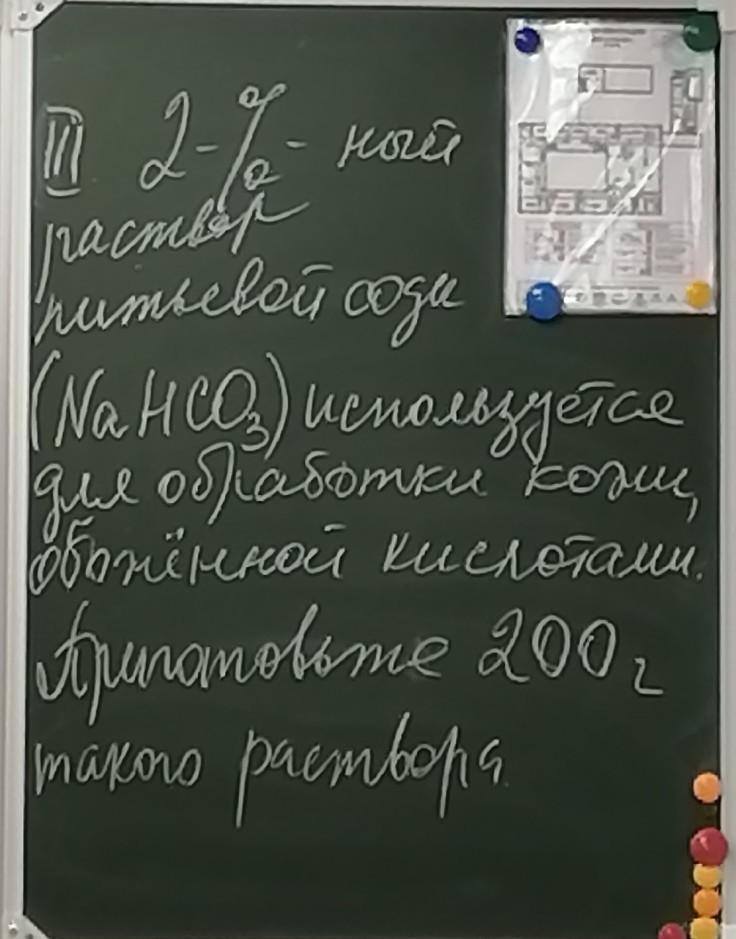 III 2-%-ный
раствор
питьевой соды
(NaHCO₃) используется
для обработки кожи,
обожжённой кислотами.
Приготовьте 200 г
такого раствора